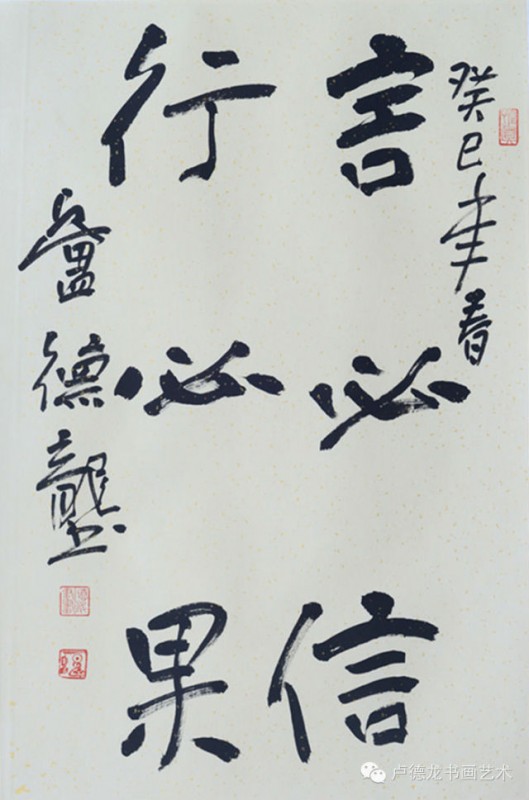 癸巳年春
言必信
行必果
盧德龍
卢德龙书画艺术